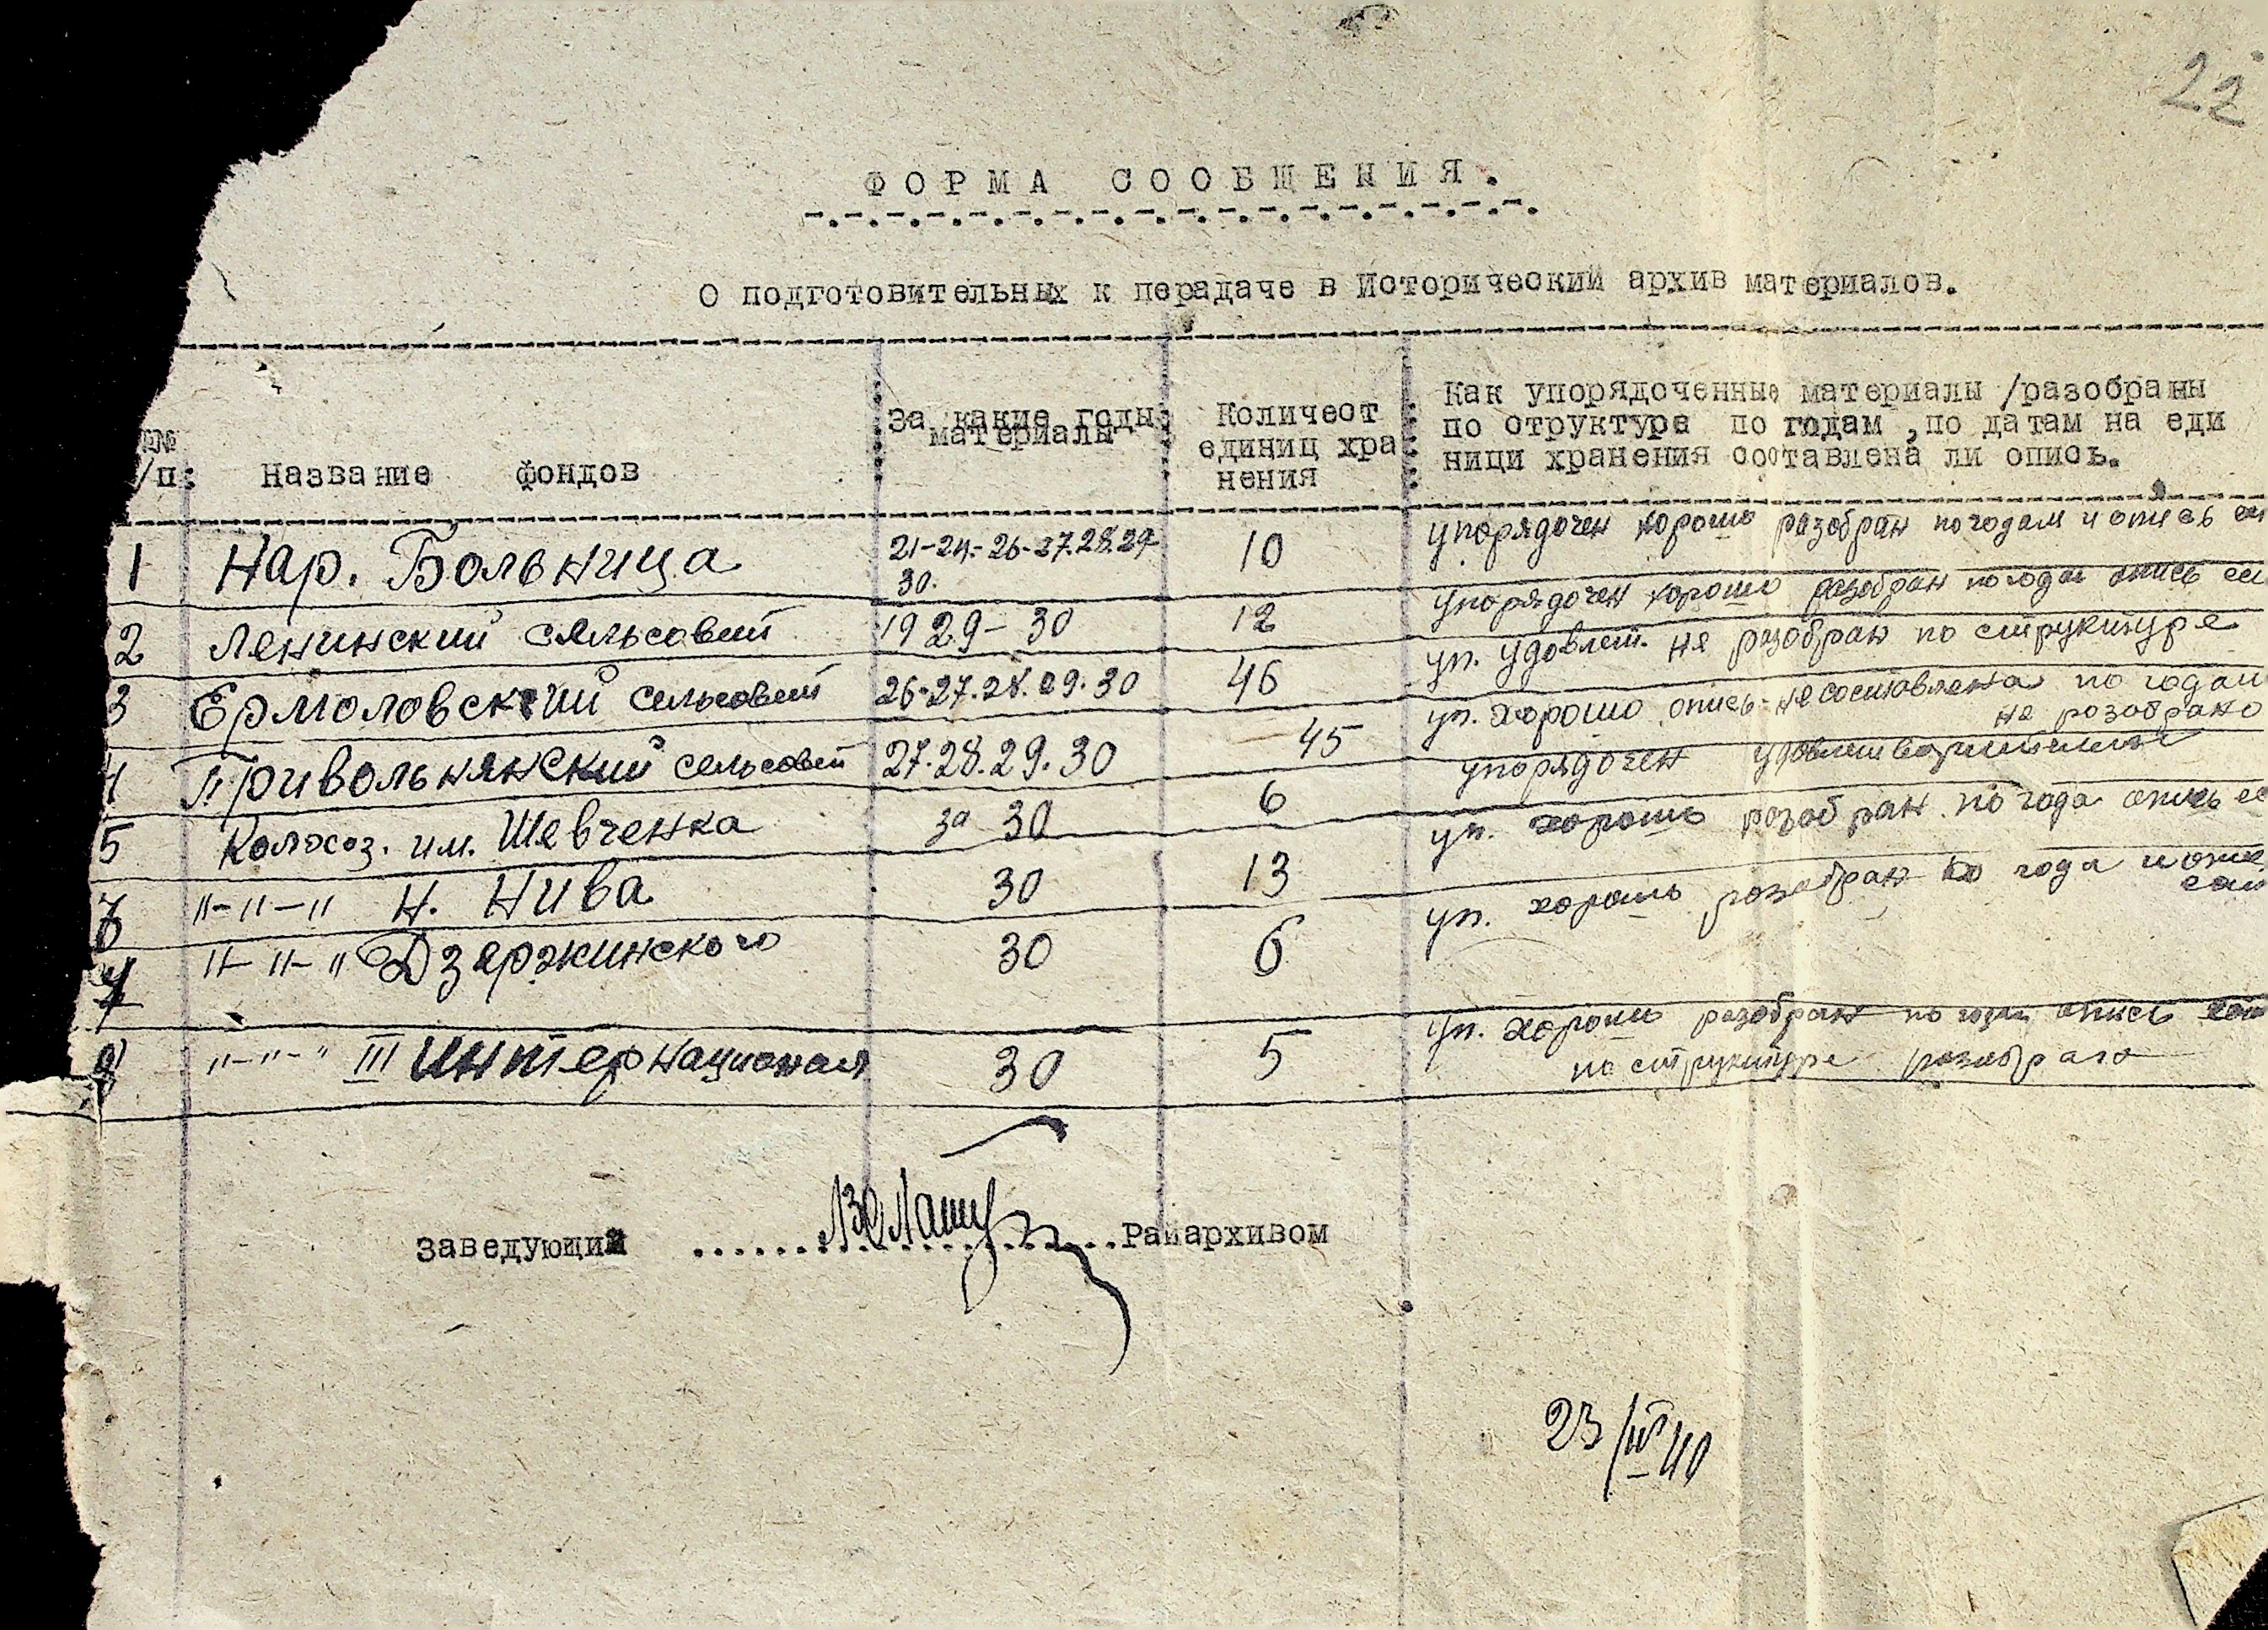 22
ФОРМА СООБЩЕНИЯ.
О подготовительных к перадаче в Исторический архив материалов.
№№ /п: Название фондов
За какие годы материалы
Количест
единиц хра
нения
Как упорядоченные материалы /разобраны
по структуре по годам, по датам на еди
ници хранения составлена ли опись.
1 Нар. Больница 21-24.-26-27.28.29 30. 10 упорядочен хорошо разобран по годам и опись
2 Ленинский сельсовет 1929-30 12 упорядочен хорошо разобран по годам опись
3 Ермоловский сельсовет 26-27.28.29.30 46 уп. удовлет. не разобран по структуре
4 Привольнянский сельсовет 27.28.29.30 45 уп. хорошо опись-не составлена по годам
не розобрано
5 Колхоз. им. Шевченка за 30 6 упорядочен удовлетворительно
"-"-" Н. Нива 30 13 уп. хорошо розобран по года опись
7 "-"-" Дзержинского 30 6 уп. хорошо розобран по года и
"-"-" III Интернационал 30 5 уп. хорошо розобран по годам опись
по структуре розобрано
Заведующий ........................Райархивом
23/III 40